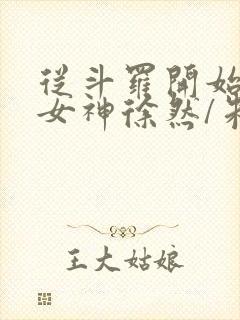 從斗羅開始
女神徐然/朱
王大姑娘